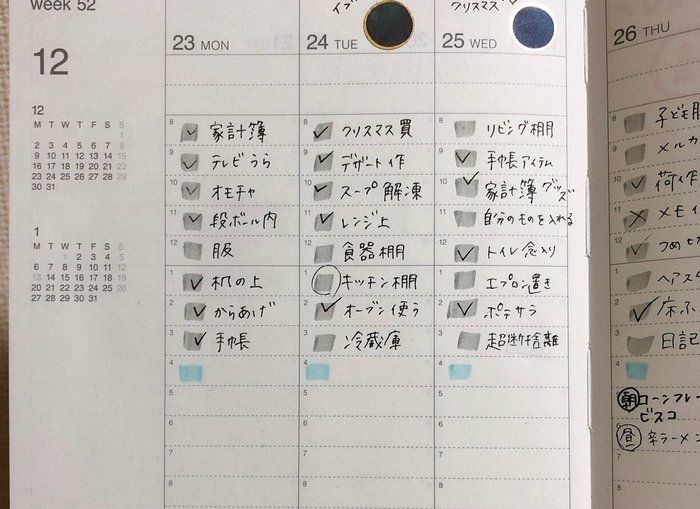 week 52
12
イブ
クリスマス
23 MON
24 TUE
25 WED
26 THU
12
M T W T F S S
1
2 3 4 5 6 7 8
9 10 11 12 13 14 15
16 17 18 19 20 21 22
23 24 25 26 27 28 29
30 31
1
M T W T F S S
1 2 3 4 5
6 7 8 9 10 11 12
13 14 15 16 17 18 19
20 21 22 23 24 25 26
27 28 29 30 31
8 家計簿
9 テレビうら
10 オモチャ
11 段ボール内
12 服
1 机の上
2 からあげ
3 手帳
4
5
6
7
8
8 クリスマス買
9 デザート作
10 スープ解凍
11 レンジ上
12 食器棚
1 キッチン棚
2 オーブン使う
3 冷蔵庫
4
5
6
7
8
8 リビング棚
9 手帳アイテム
10 家計簿グッズ
11 自分のものを入れる
12 トイレ念入り
1 エプロン置き
2 ポテサラ
3 超断捨離
4
5
6
7
8
8 子ども服
9 メルカ
10 荷作
11 メモイ
12 つめ
1 ヘアス
2 床ふ
3 日記
4
朝 ローンフレー
ビスコ
昼 辛ラーメン
7
8